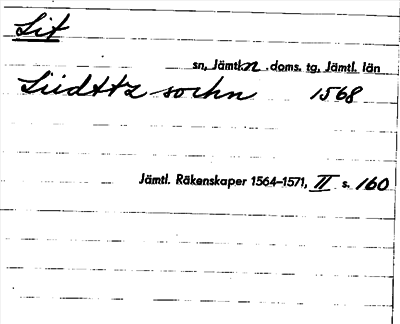 Lit
sn, Jämtl. n. doms. tg, Jämtl. län
Liidttz sochn 1568
Jämtl. Räkenskaper 1564-1571, II s. 160